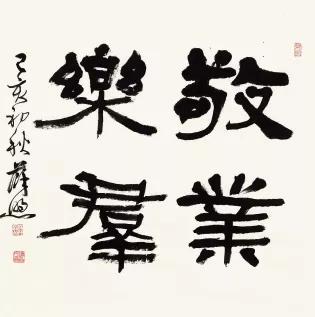 敬業
樂羣
己亥初秋薛